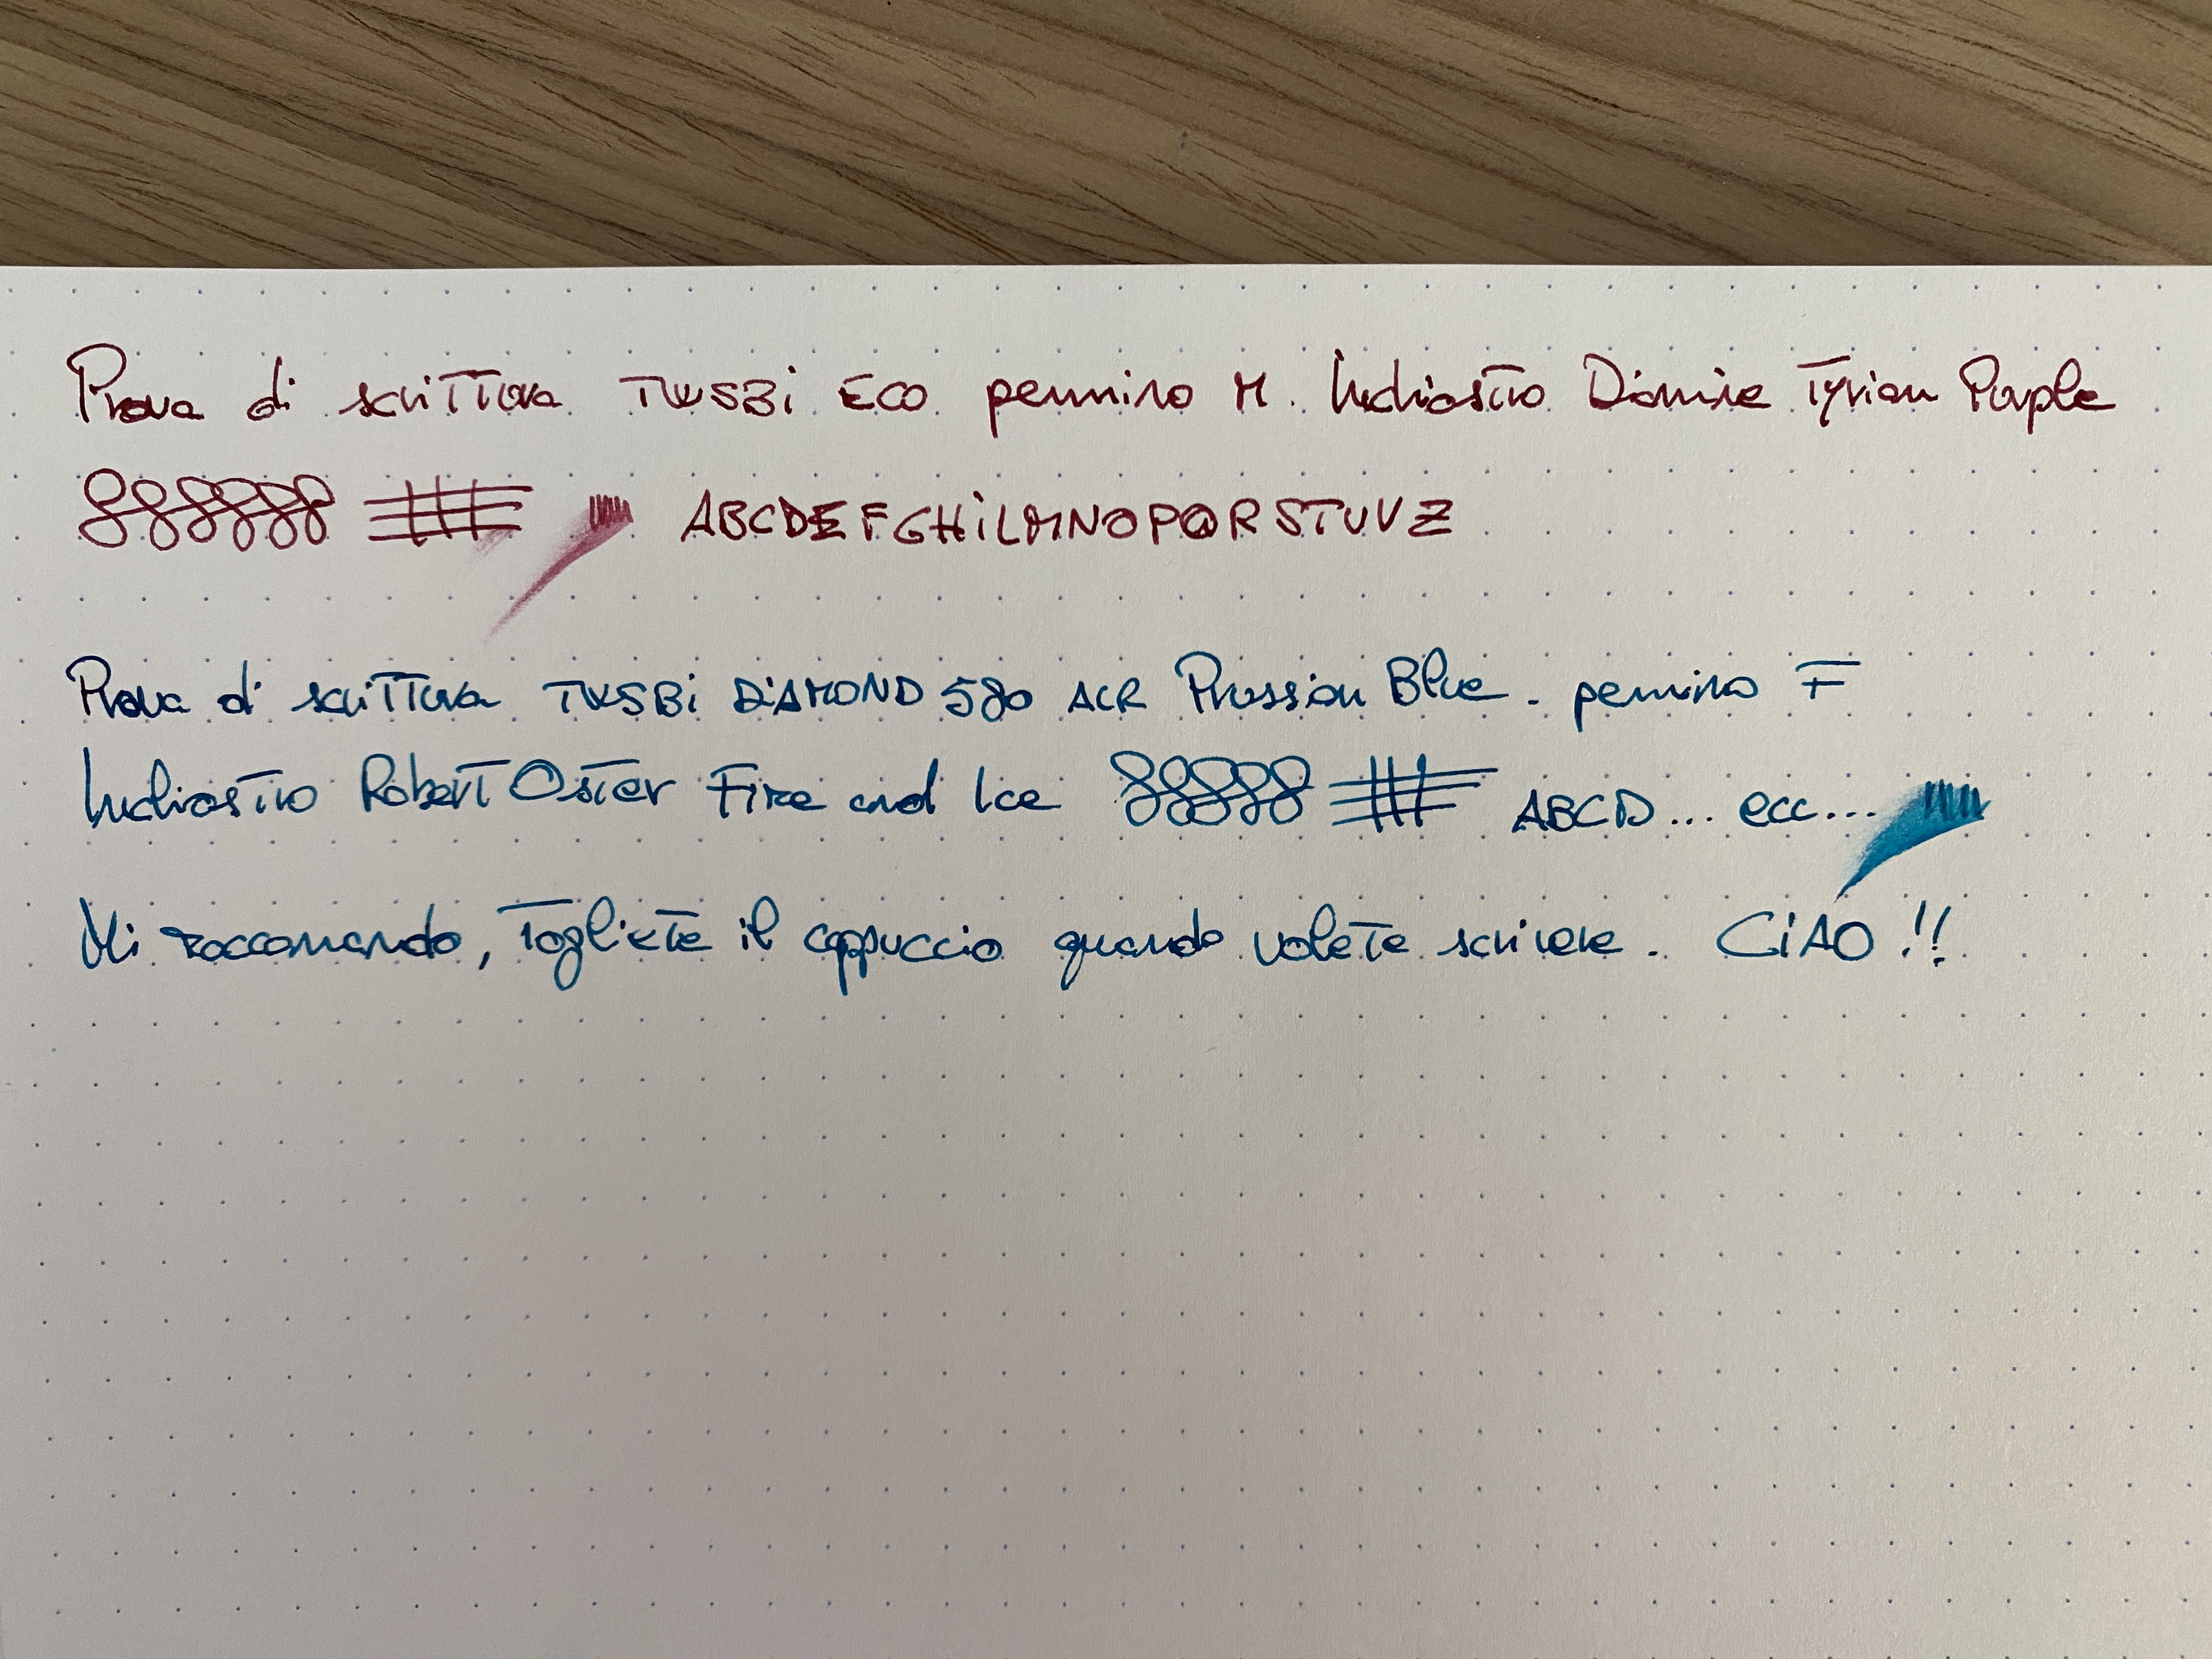 Prova di scrittura TWSBi ECO pennino M. Inchiostro Diamine Tyrian Purple
ABCDEFGHiLMNOPQRSTUVZ
Prova di scrittura TWSBi DiAMOND 580 ALR Prussian Blue - pennino F
Inchiostro Robert Oster Fire and Ice ABCD... ecc...
Mi raccomando, togliete il cappuccio quando volete scrivere. CiAO!!